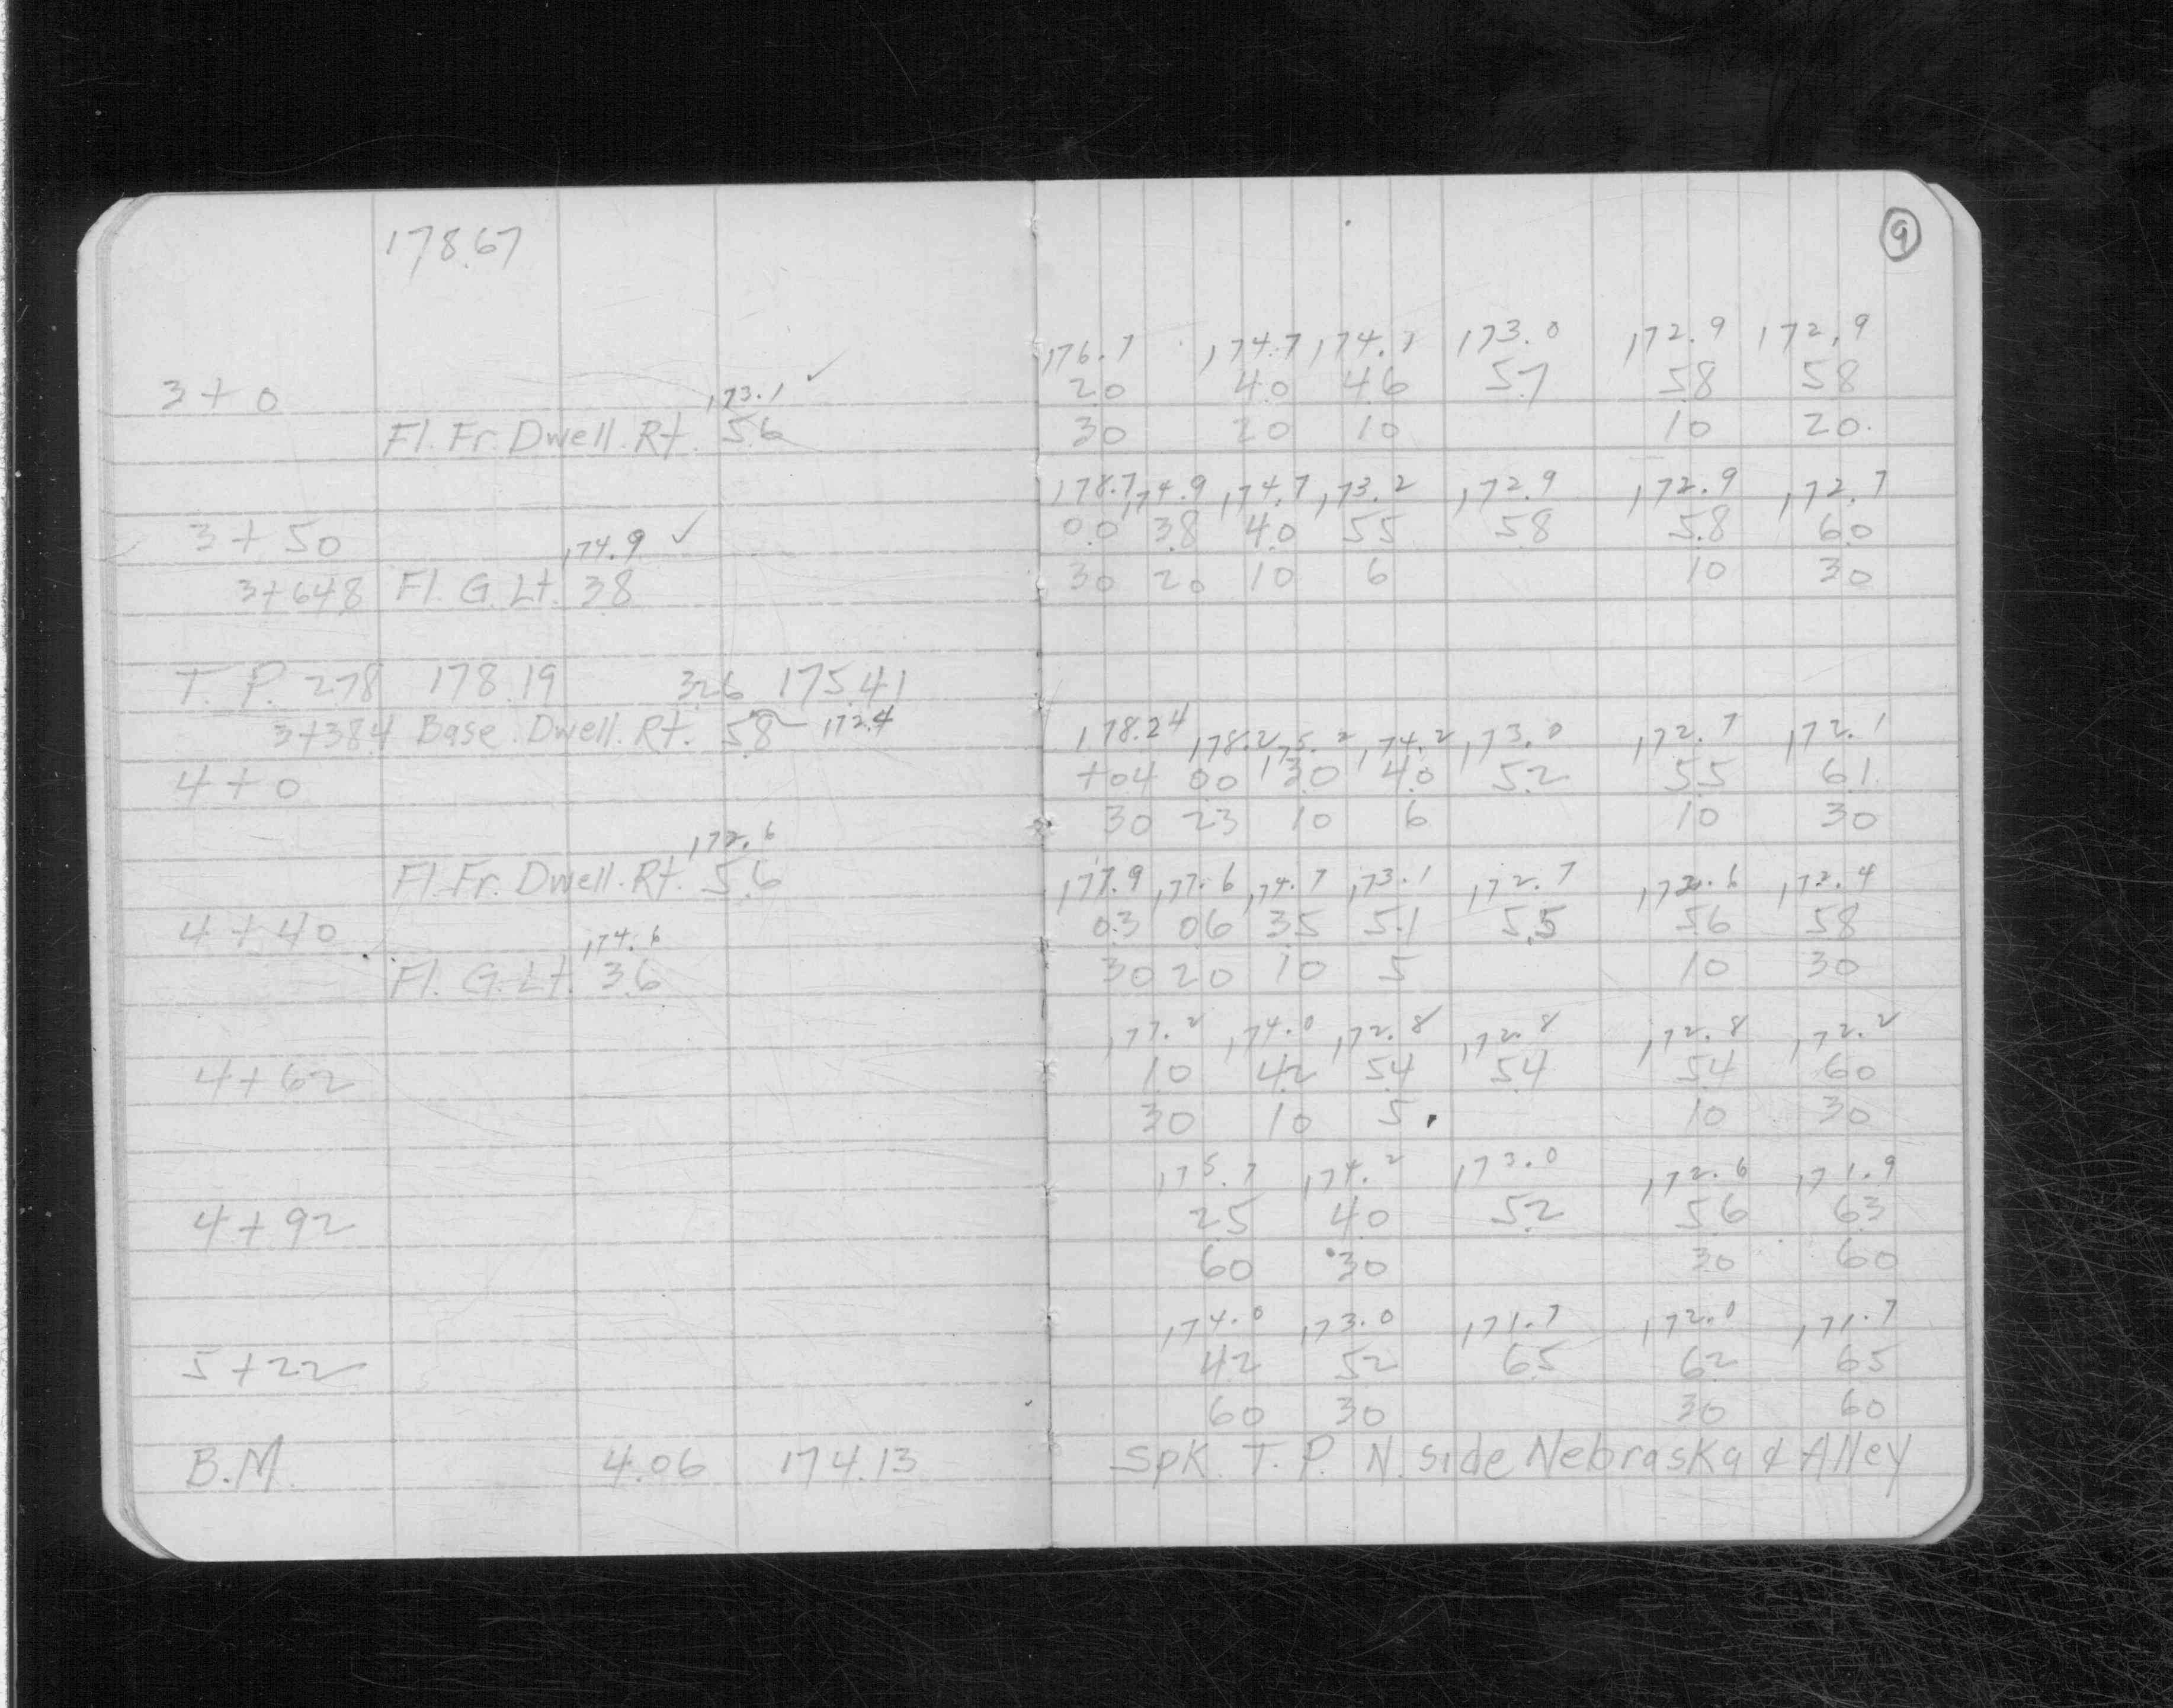 178.67
9
176.7 174.7 174.1 173.0 172.9 172.9
3+0 173.1 ✓ 2.0 4.0 4.6 5.7 5.8 5.8
Fl. Fr. Dwell. Rt. 5.6 30 20 10 10 20
178.7 174.9 174.7 173.2 172.9 172.9 172.7
3+50 174.9 ✓ 0.0 3.8 4.0 5.5 5.8 5.8 6.0
3+64.8 Fl. G. Lt. 3.8 30 20 10 6 10 30
T. P. 2.78 178.19 3.26 175.41
3+38.4 Base. Dwell. Rt. 5.8 172.4 178.24 178.2 175.2 174.2 173.0 172.7 172.1
4+0 +04 00 3.0 4.0 5.2 5.5 6.1
30 23 10 6 10 30
172.6
Fl. Fr. Dwell. Rt. 5.6 177.9 177.6 174.7 173.1 172.7 172.6 172.4
4+40 174.6 0.3 0.6 3.5 5.1 5.5 5.6 5.8
Fl. G. Lt. 3.6 30 20 10 5 10 30
177.2 174.0 172.8 172.8 172.8 172.2
4+62 1.0 4.2 5.4 5.4 5.4 6.0
30 10 5 10 30
175.7 174.2 173.0 172.6 171.9
4+92 2.5 4.0 5.2 5.6 6.3
60 30 30 60
174.0 173.0 171.7 172.0 171.7
5+22 4.2 5.2 6.5 6.2 6.5
60 30 30 60
B.M. 4.06 174.13 Spk. T. P. N. side Nebraska & Alley